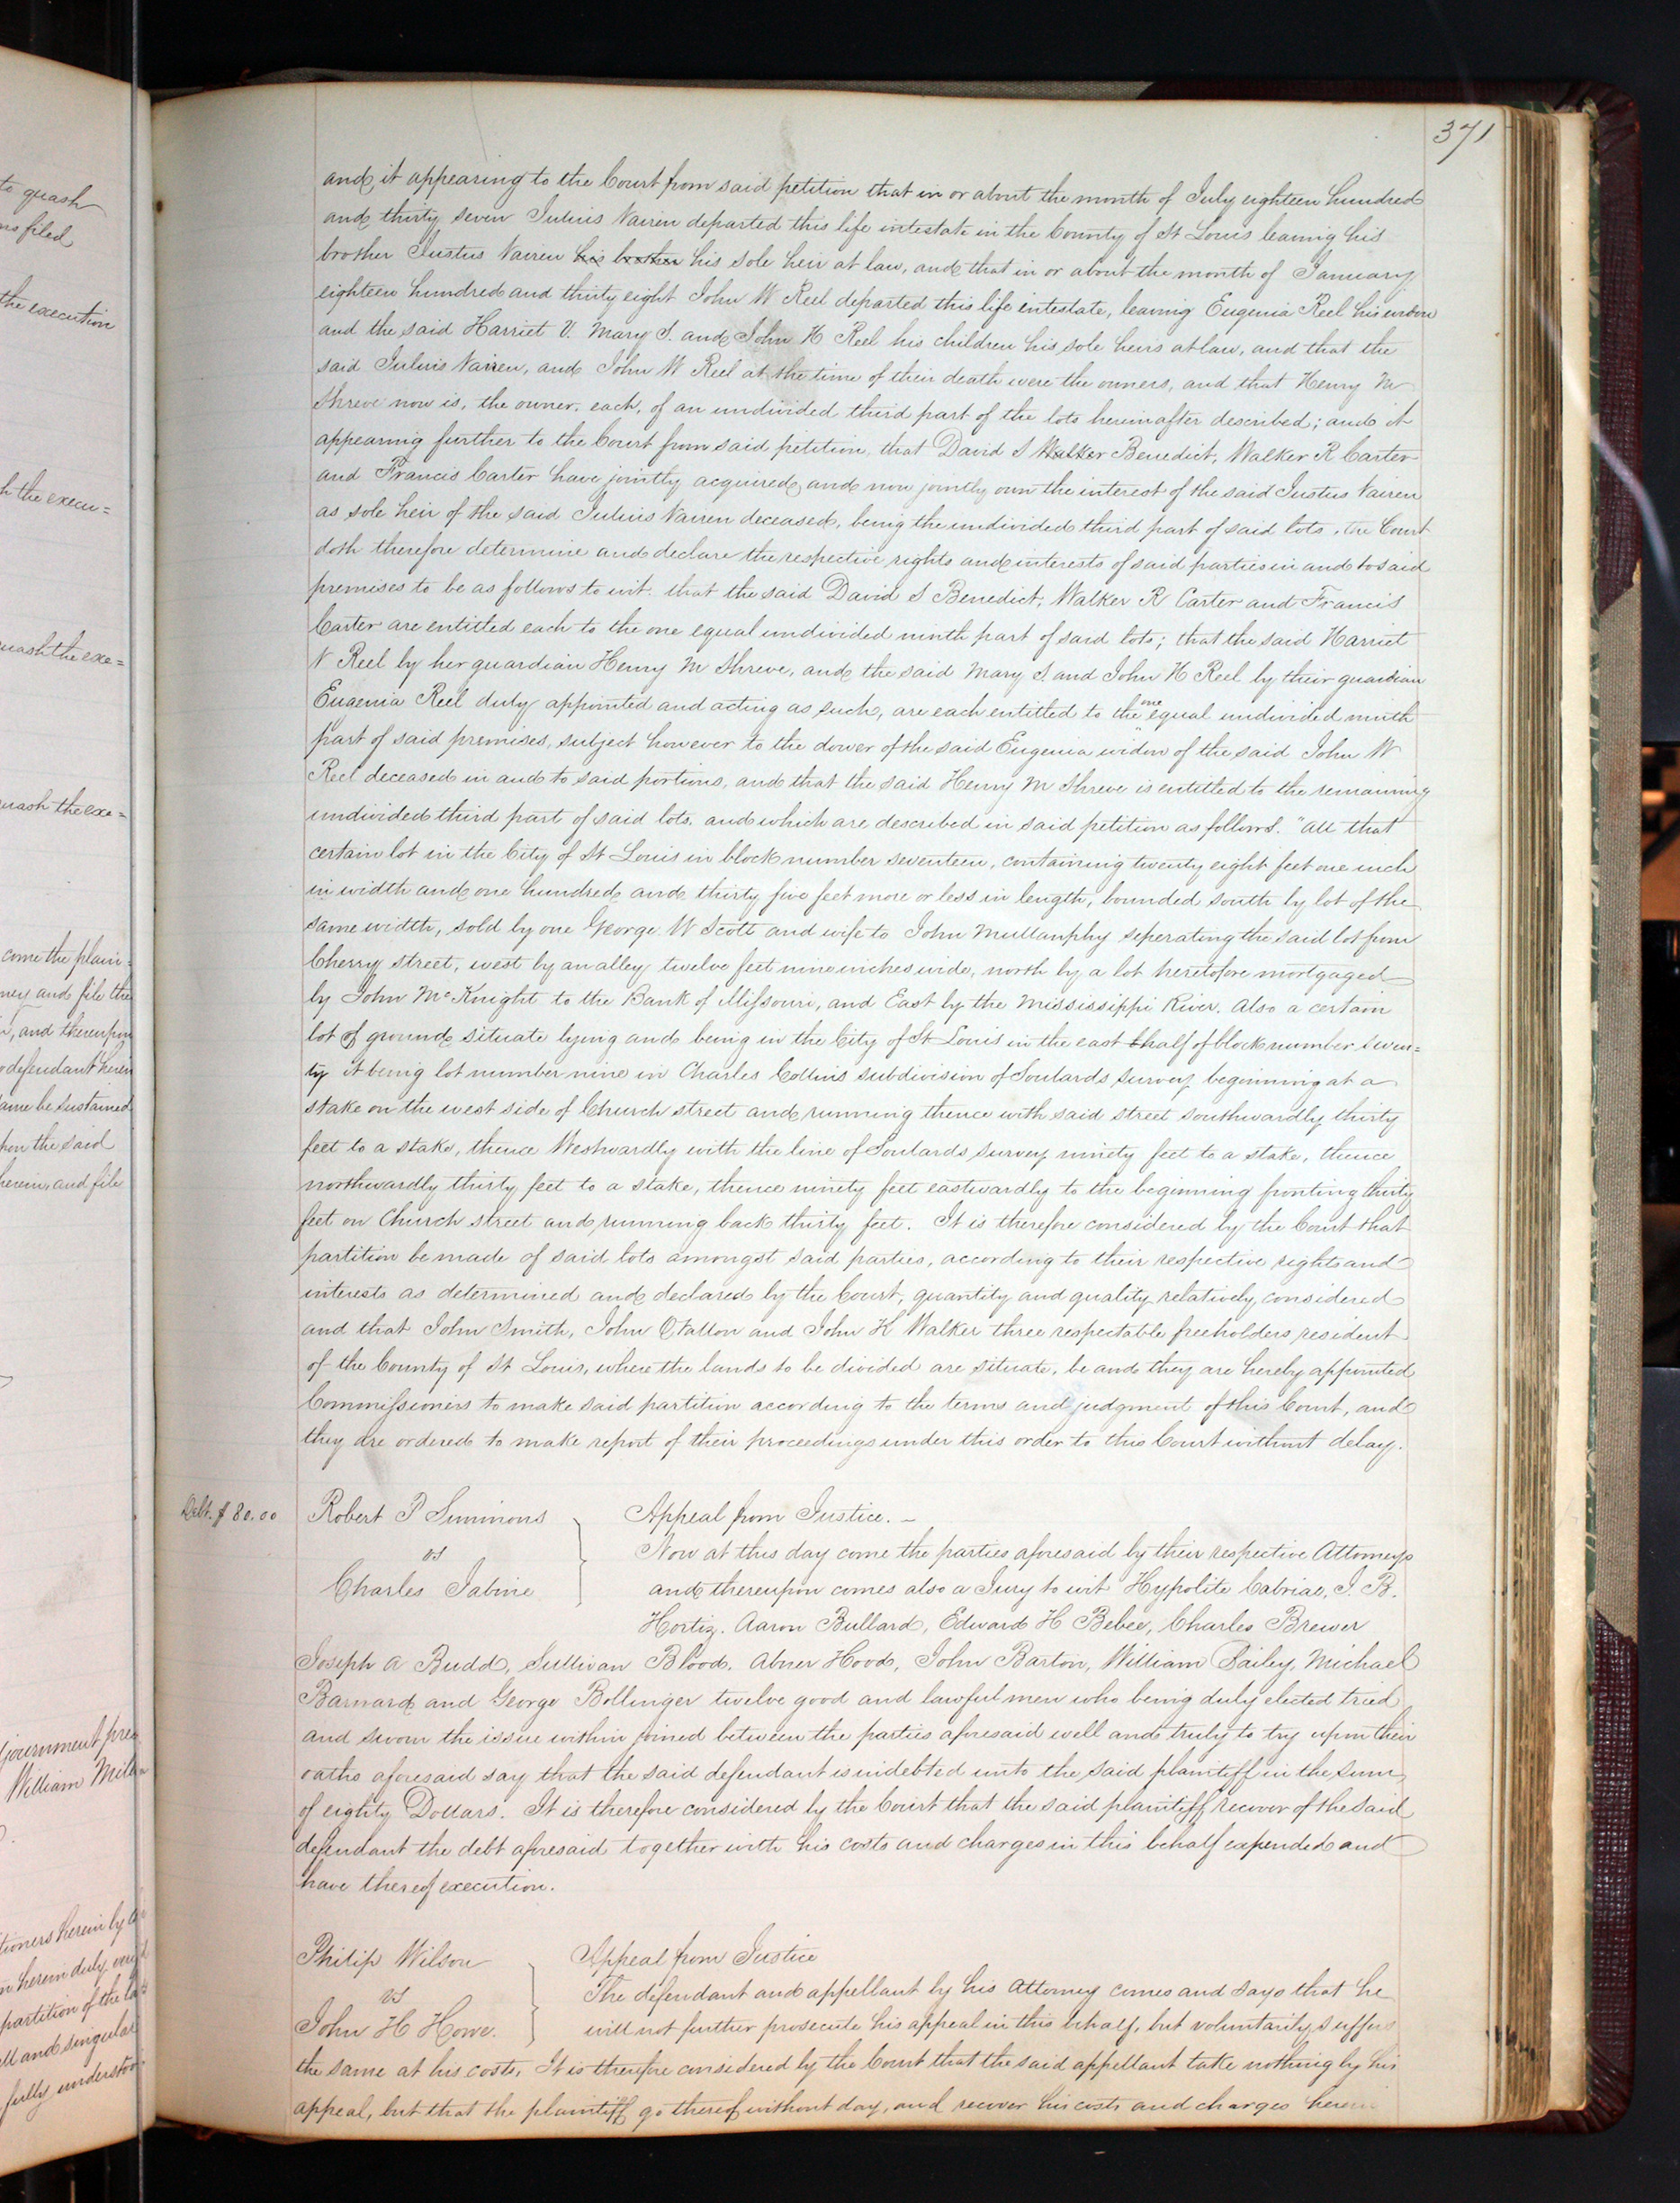 to quash
ns filed
the execution
h the execu=
uash the exe=
uash the exe=
come the plain=
ney and file the
, and thereupon
defendant herein
ame be sustained
pon the said
herein, and file
Government pre
William Mil
tioners herein by
n herein duly
partition of the la
ll and singular
fully understoo
371
and it appearing to the Court from said petition that in or about the month of July eighteen hundred
and thirty seven Julius Nairen departed this life intestate in the County of St Louis leaving his
brother Justus Nairen his brother his sole heir at law, and that in or about the month of January
eighteen hundred and thirty eight John W Reel departed this life intestate, leaving Eugenia Reel his widow
and the said Harriet V. Mary S. and John H Reel his children his sole heirs at law, and that the
said Julius Nairen, and John W Reel at the time of their death were the owners, and that Henry M
Shreve now is, the owner, each, of an undivided third part of the lots hereinafter described; and it
appearing further to the Court from said petition, that David S Walker Benedict, Walker R Carter
and Francis Carter have jointly acquired, and now jointly own the interest of the said Justus Nairen
as sole heir of the said Julius Nairen deceased, being the undivided third part of said lots, the Court
doth therefore determine and declare the respective rights and interests of said parties in and to said
premises to be as follows to wit, that the said David S Benedict, Walker R Carter and Francis
Carter are entitled each to the one equal undivided ninth part of said lots; that the said Harriet
V Reel by her guardian Henry M Shreve, and the said Mary S. and John H Reel by their guardian
Eugenia Reel duly appointed and acting as such, are each entitled to the one equal undivided ninth
part of said premises, subject however to the dower of the said Eugenia widow of the said John W
Reel deceased in and to said portions, and that the said Henry M Shreve is entitled to the remaining
undivided third part of said lots, and which are described in said petition as follows. "All that
certain lot in the City of St Louis in block number seventeen, containing twenty eight feet one inch
in width and one hundred and thirty five feet more or less in length, bounded south by lot of the
same width, sold by one George W Scott and wife to John Mullanphy seperating the said lot from
Cherry street, west by an alley twelve feet nine inches wide, north by a lot heretofore mortgaged
by John McKnight to the Bank of Missouri, and East by the Mississippi River. Also a certain
lot of ground situate lying and being in the City of St Louis in the east half of block number seven=
ty it being lot number nine in Charles Collins subdivision of Soulards survey beginning at a
stake on the west side of Church street and running thence with said street southwardly thirty
feet to a stake, thence Westwardly with the line of Soulards survey ninety feet to a stake, thence
northwardly thirty feet to a stake, thence ninety feet eastwardly to the beginning fronting thirty
feet on Church street and running back thirty feet. It is therefore considered by the Court that
partition be made of said lots amongst said parties, according to their respective rights and
interests as determined and declared by the Court, quantity and quality relatively considered
and that John Smith, John OFallon and John K Walker three respectable freeholders resident
of the County of St Louis, where the lands to be divided are situate, be and they are hereby appointed
Commissioners to make said partition according to the terms and judgment of this Court, and
they are ordered to make report of their proceedings under this order to this Court without delay.
Debt. $80.00
Robert P Simmons
vs
Charles Sabine
Appeal from Justice. —
Now at this day come the parties aforesaid by their respective Attorneys
and thereupon comes also a Jury to wit Hypolite Cabriae, J. B.
Hortiz. Aaron Bullard, Edward H Bebee, Charles Brewer
Joseph A Budd, Sullivan Blood, Abner Hood, John Barton, William Bailey, Michael
Barnard and George Bollinger twelve good and lawful men who being duly elected tried
and sworn the issue within joined between the parties aforesaid well and truly to try upon their
oaths aforesaid say that the said defendant is indebted unto the said plaintiff in the sum
of eighty Dollars. It is therefore considered by the Court that the said plaintiff recover of the said
defendant the debt aforesaid together with his costs and charges in this behalf expended and
have thereof execution.
Philip Wilson
vs
John H Howe.
Appeal from Justice
The defendant and appellant by his Attorney comes and says that he
will not further prosecute his appeal in this behalf, but voluntarily suffers
the same at his costs, It is therefore considered by the Court that the said appellant take nothing by his
appeal, but that the plaintiff go thereof without day, and recover his costs and charges herein